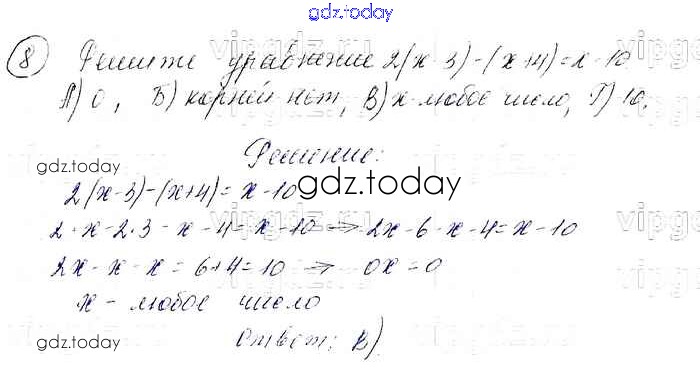 gdz.today
8 Решите уравнение 2(x-3)-(x+4)=x-10
А) 0, Б) корней нет, В) x-любое число, Г) 10.
Решение:
gdz.today
2(x-3)-(x+4)=x-10
gdz.today
2·x-2·3-x-4=x-10 → 2x-6-x-4=x-10
2x-x-x=6+4=10 → 0x=0
x-любое число
gdz.today
Ответ: В)
gdz.today